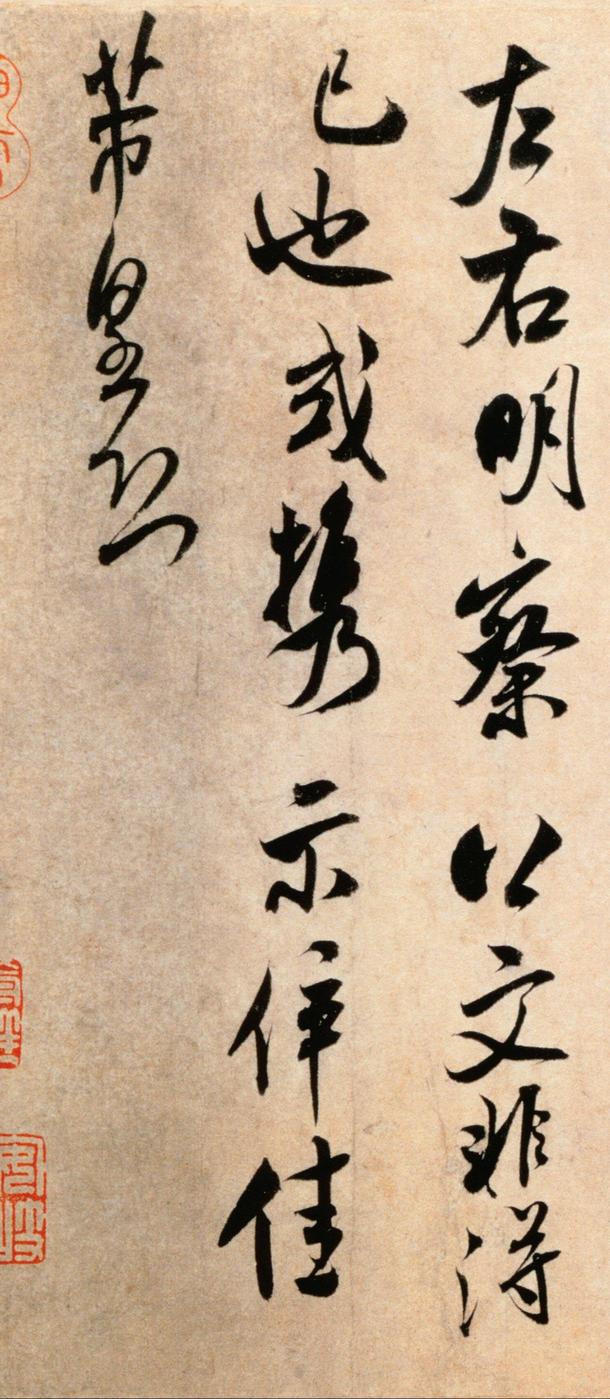 左右明察以文非得
已也或携示倅佳
芾皇恐